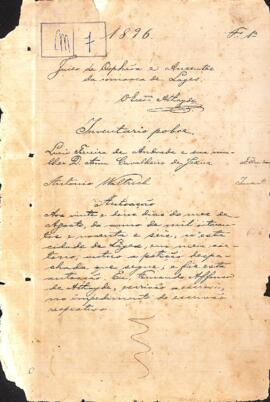 1896.
Juiso de Orphãos e Ausentes
da comarca de Lages.
O Escr. Athayde
Inventario pobre.
Luis Vieira de Andrade e sua mu-
lher D. Anna Carvalheira de
Antonio Waltrich
Autoação
Aos vinte e dous dias do mes de
Agosto, do anno de mil oitocen-
tos e noventa e seis, n'esta
cidade de Lages, em meu car-
torio, autuo a petição despa-
chada que segue; e fiz esta
autuação. Eu, Fernando Affonso
de Athayde, escrivão a escrevi,
no impedimento do escrivão
respectivo.